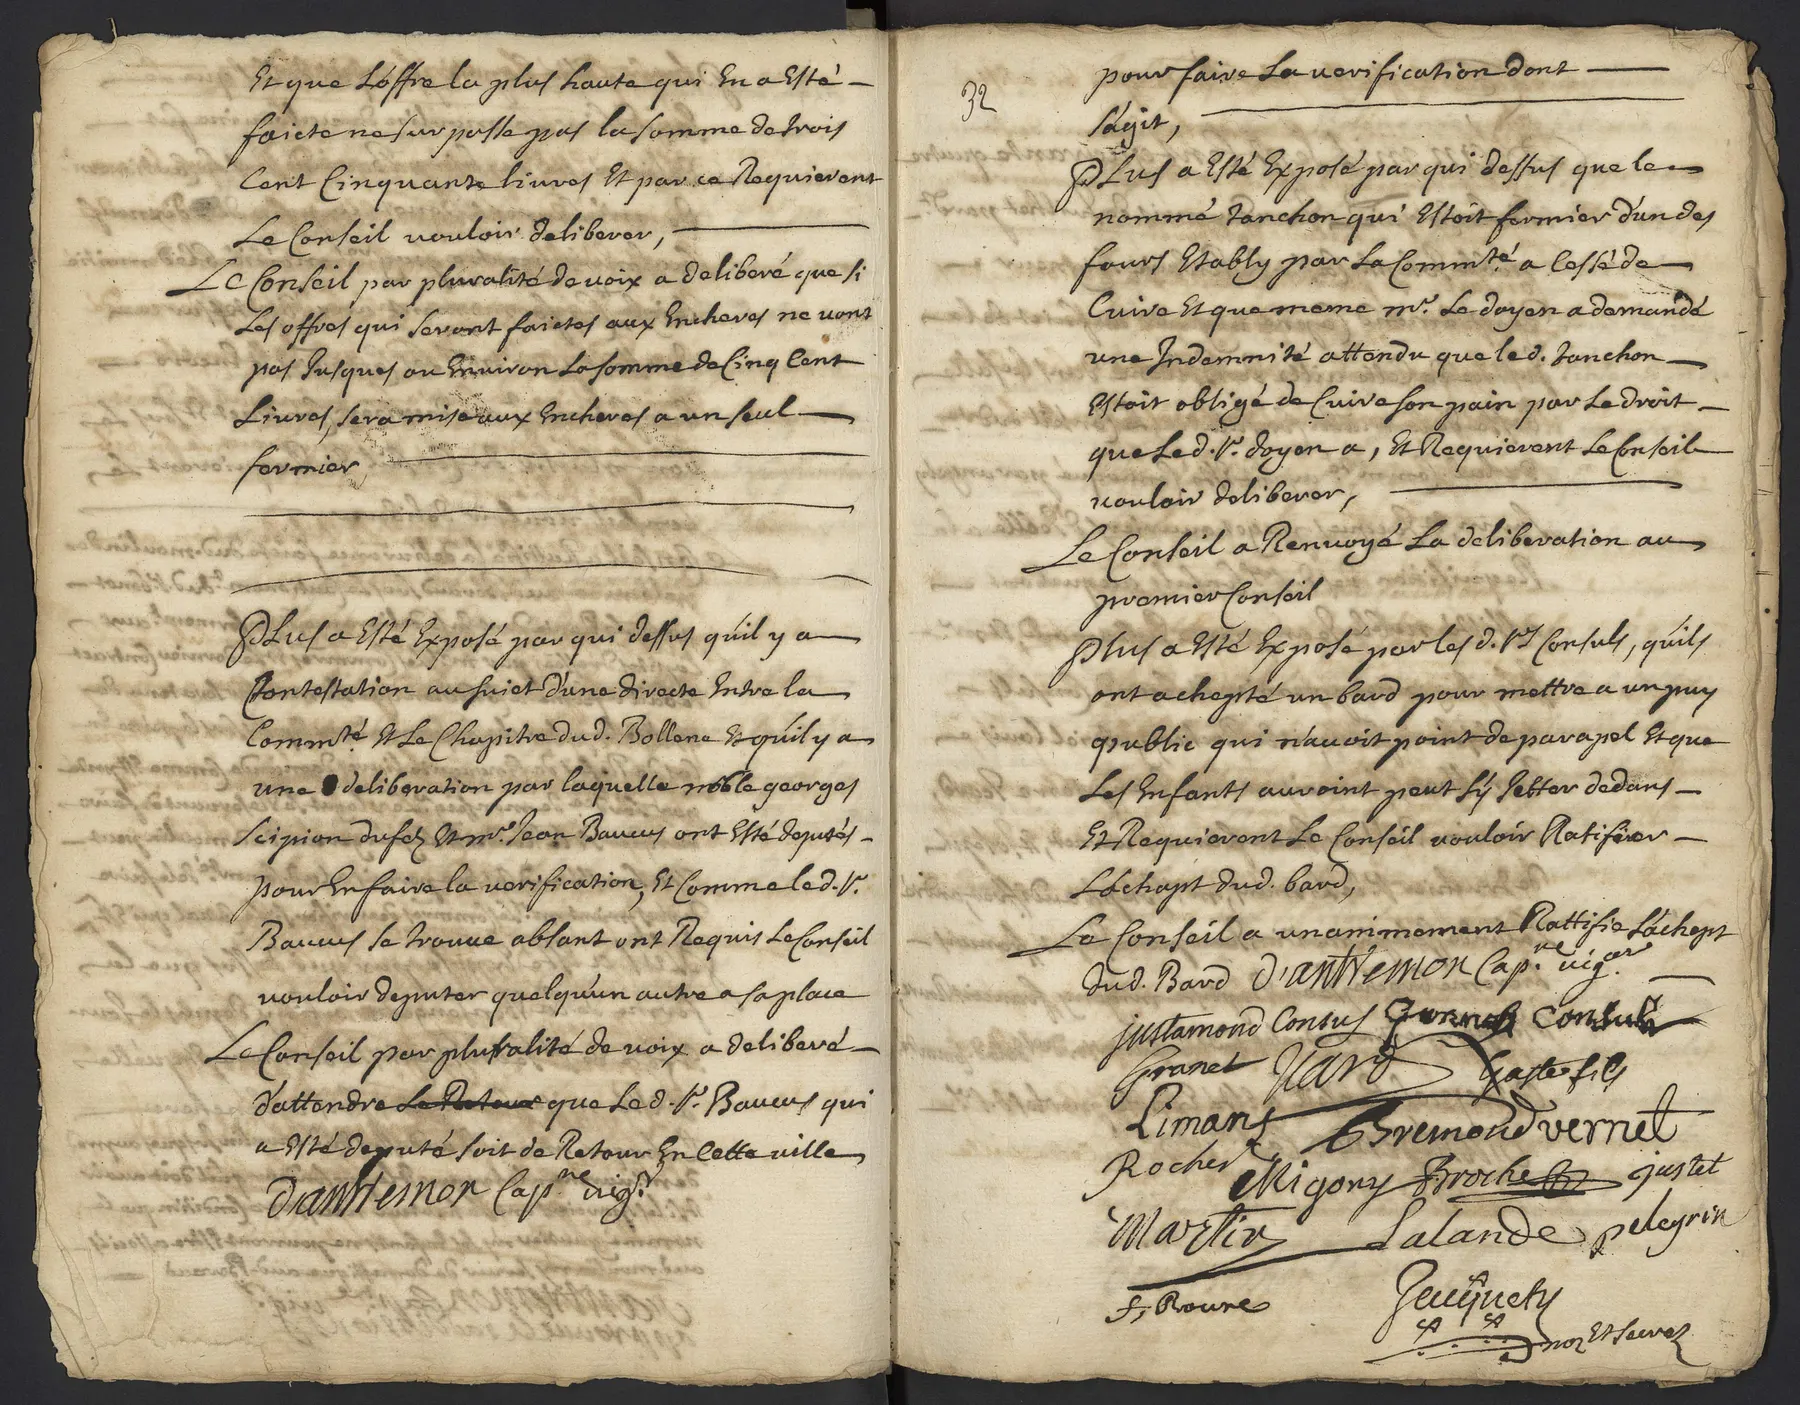 Et que Loffre la plus haute qui En a Esté
faicte ne surpasse pas la somme de trois
Cent Cinquante livres Et par ce Requierent
Le Conseil vouloir deliberer,
Le Conseil par pluralité de voix a deliberé que si
Les offres qui seront faictes aux Encheres ne vont
pas Jusques ou Environ La somme de Cinq Cent
Livres, sera mise aux Encheres a un seul
fermier
Plus a Esté Exposé par qui dessus quil y a
Contestation au sujet d'une directe Entre la
Commté. Et Le Chapitre dud. Bollene Et quil y a
une deliberation par laquelle noble georges
Scipion dufez Et mre. Jean Baucus ont Esté deputés
pour En faire la verification, Et Comme le d. Sr.
Baucus se trouve absant ont Requis Le Conseil
vouloir deputer quelqu'un autre a sa place
Le Conseil par pluralité de voix a deliberé
d'attendre Le Retour que Le d. Sr. Baucus qui
a Esté deputé soit de Retour En Cette ville
D'anthemon Capne. vigr.
32
pour faire La verification dont
s'agit,
PLus a Esté Exposé par qui dessus que le
nommé tanchon qui Estoit fermier d'un des
fours Etably par La Commté. a Cessé de
Cuire Et que meme mr. Le doyen a demandé
une Indemnité attendu que le d. tanchon
Estoit obligé de Cuire son pain par Le droit
que Le d. Sr. doyen a, Et Requierent Le Conseil
vouloir deliberer,
Le Conseil a Renvoyé La deliberation au
premier Conseil
Plus a Esté Exposé par les d. Srs Consuls, qu'ils
ont achepté un bard pour mettre a un puy
public qui n'avoit point de parapel Et que
Les Enfants auroint peut s'y Jetter dedans
Et Requierent Le Conseil vouloir Ratifier
L'achapt dud. bard,
Le Conseil a unanimement Rattifie L'achept
dud. Bard D'anthemon Capne. vigr.
justamond Consus Consul
Granet Gaste fils
Limans Bremond vernet
Rocher Migony Broche justet
Martin Lalande pelegrin
F, Roure
nore Et Secret